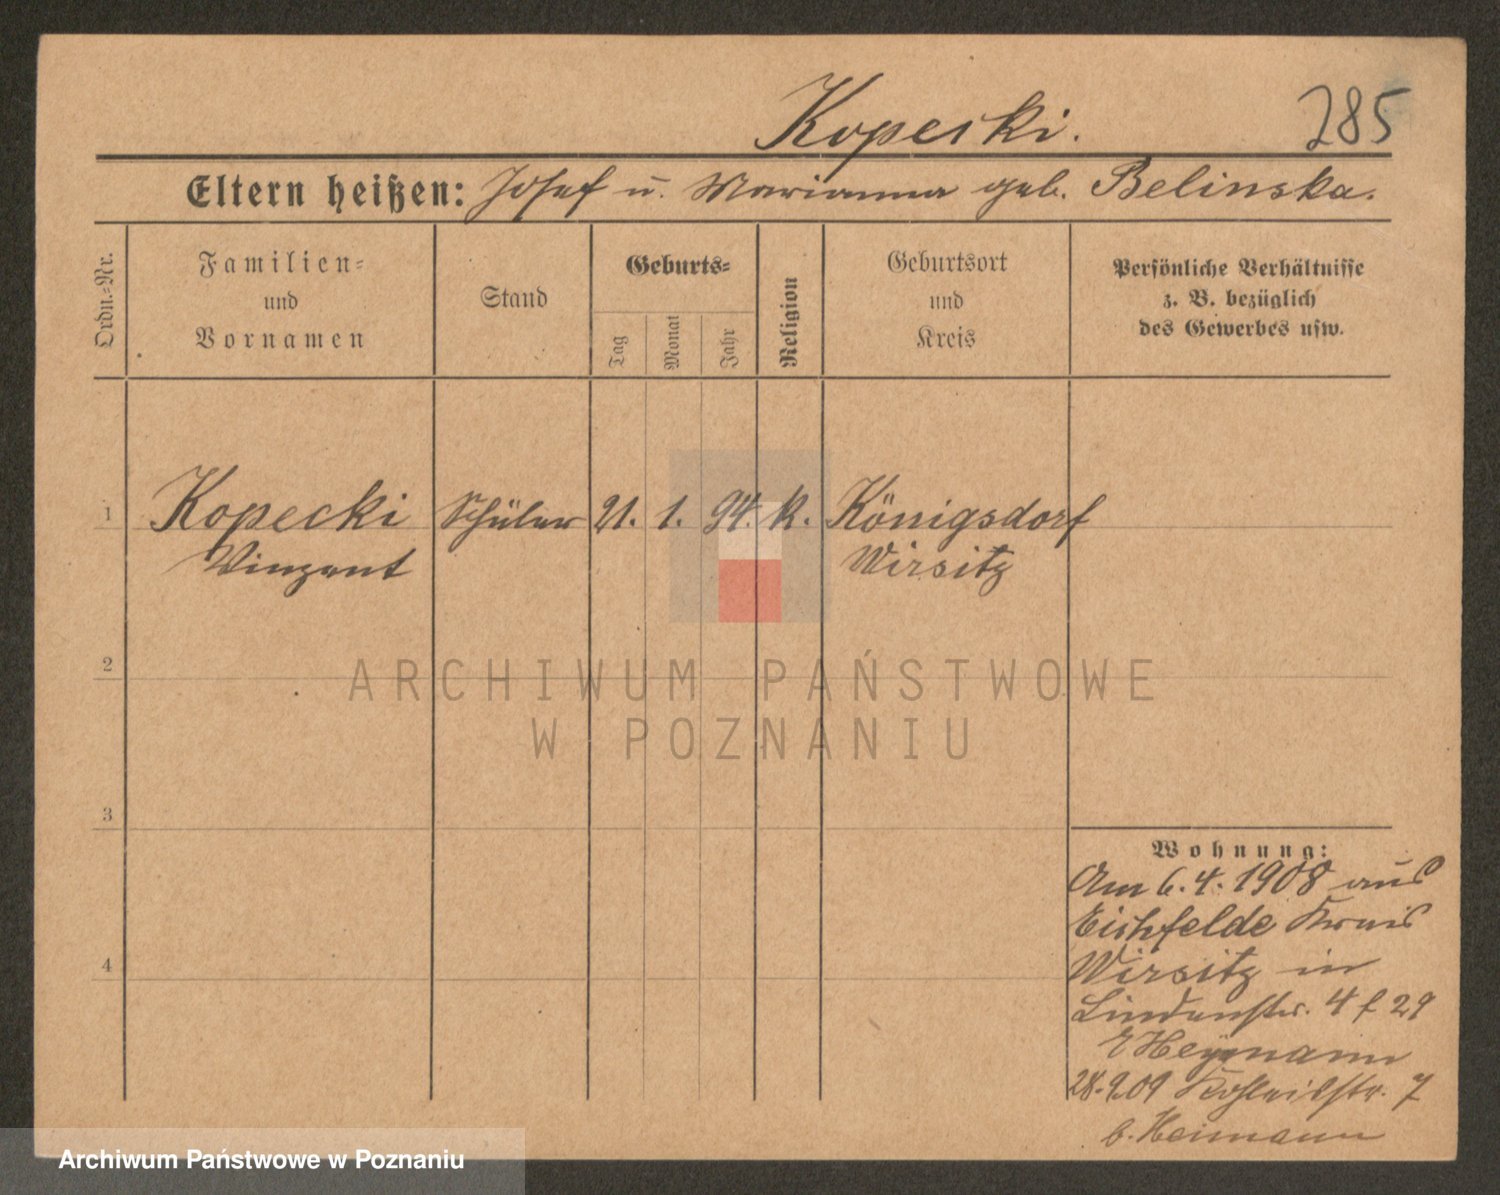 Kopecki.
285
Eltern heißen: Josef u. Marianna geb. Belinska.
Ordn.-Nr.
Familien-
und
Vornamen
Stand
Geburts-
Tag
Monat
Jahr
Religion
Geburtsort
und
Kreis
Persönliche Verhältnisse
z. B. bezüglich
des Gewerbes usw.
1 Kopecki Schüler 21. 1. 94. k. Königsdorf
Vinzent Wirsitz
2
3
4
ARCHIWUM PAŃSTWOWE
W POZNANIU
Wohnung:
Am 6.4.1908 aus
Eichfelde Kreis
Wirsitz in
Lindenstr. 4 f 29
Heymann
28.9.09 7
b. Heimann
Archiwum Państwowe w Poznaniu